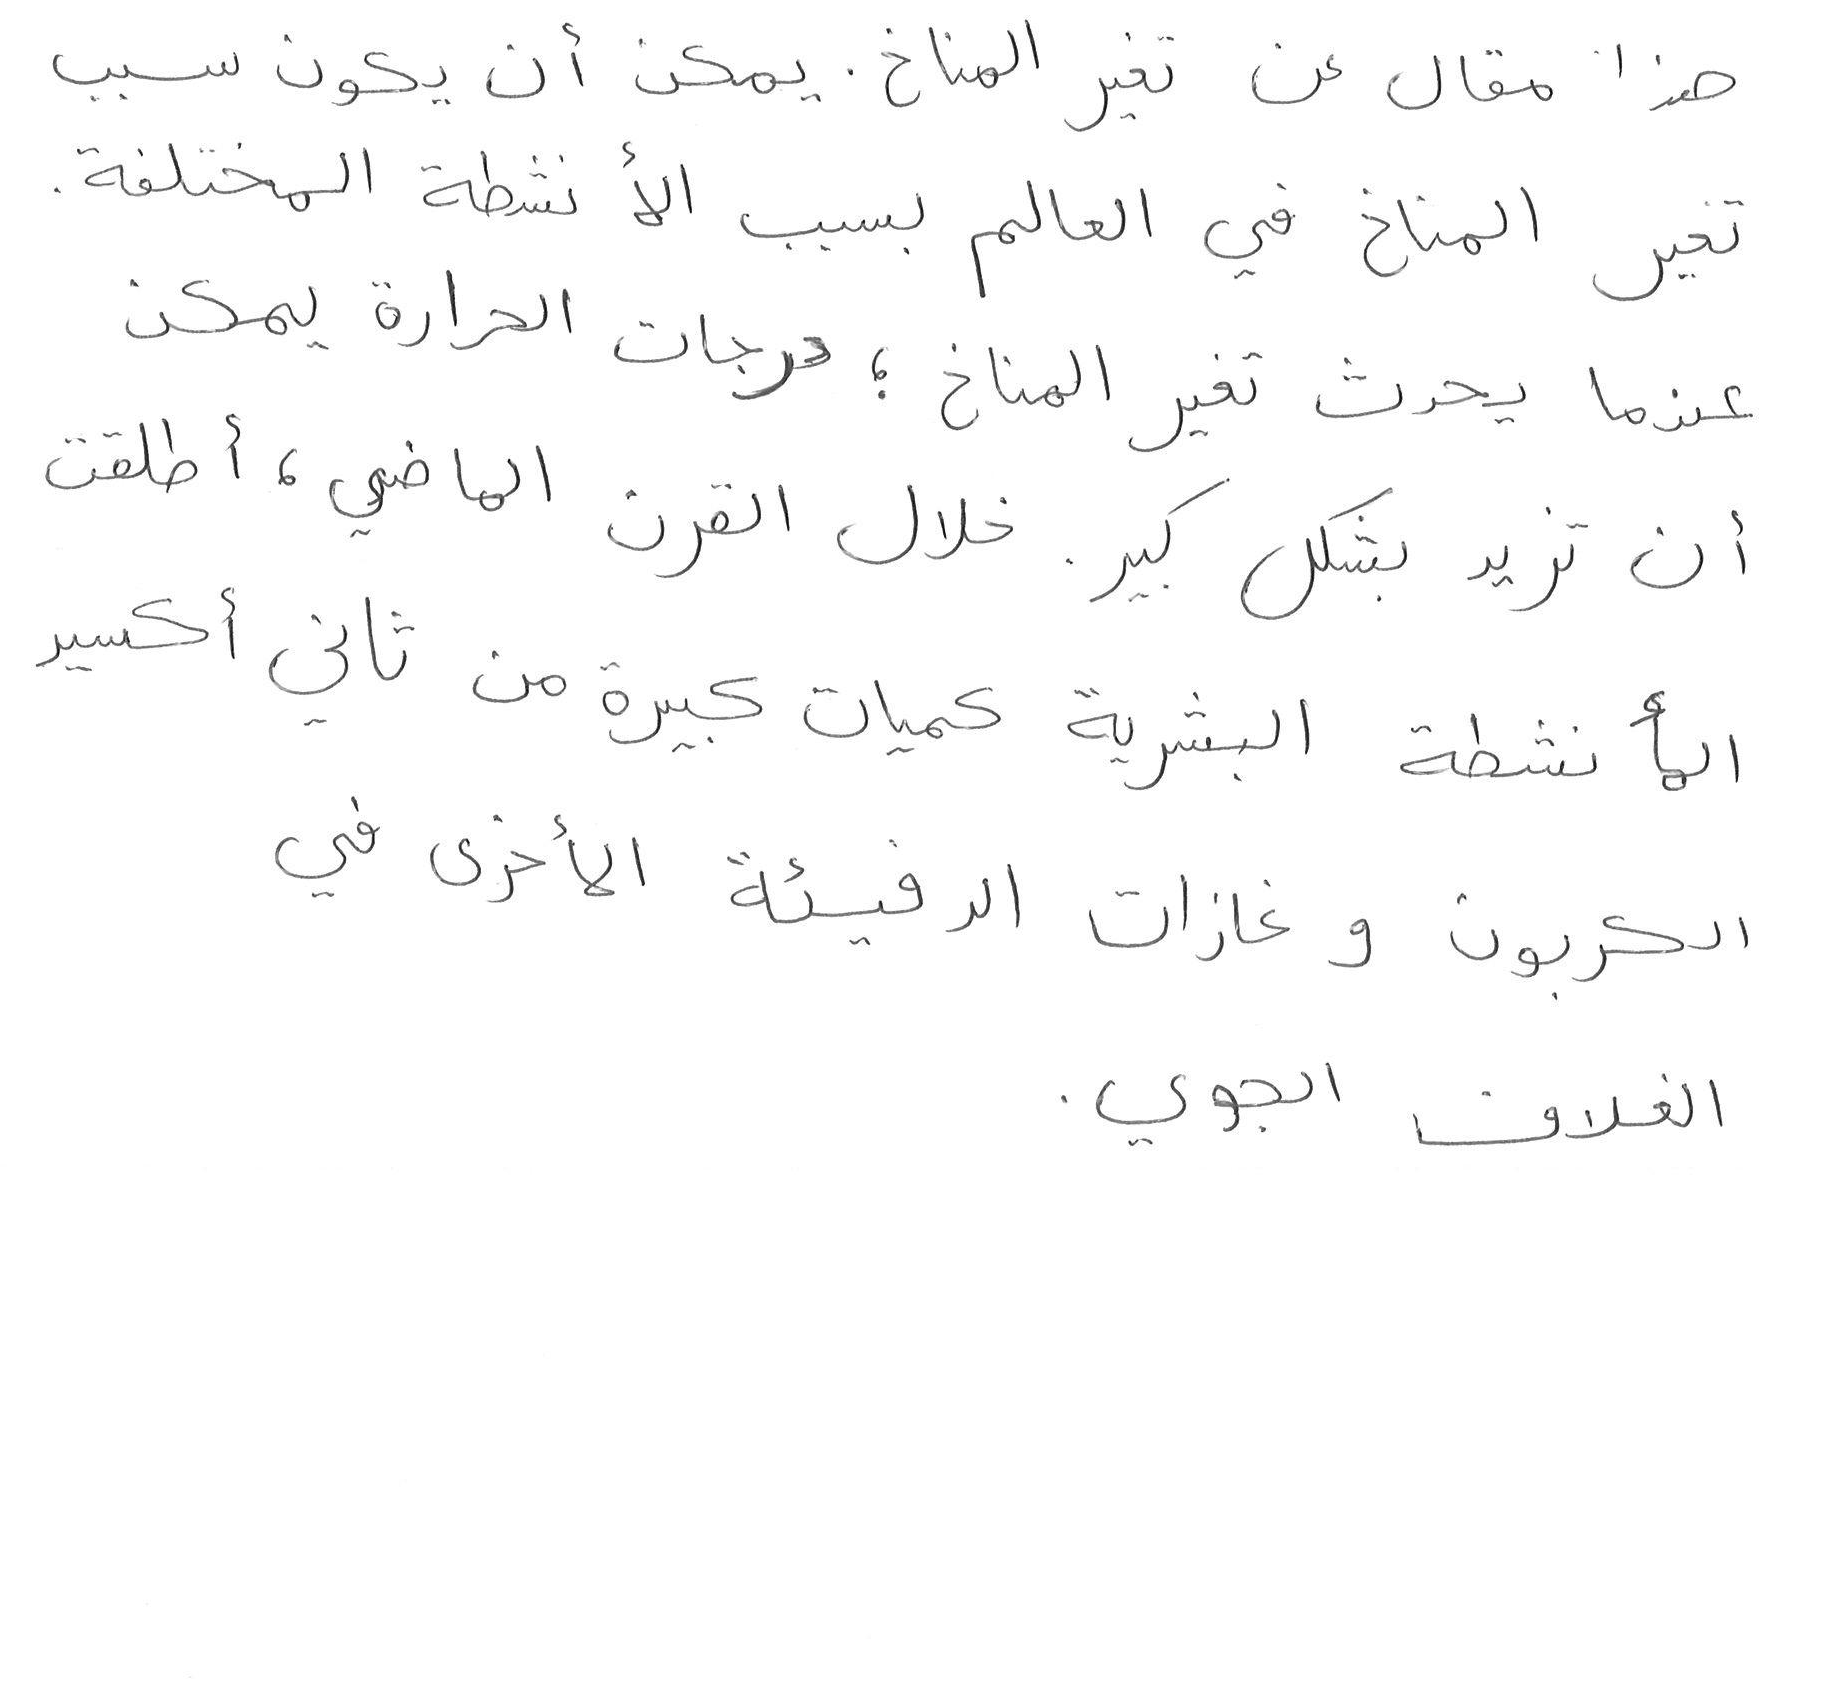 هذا مقال عن تغير المناخ. يمكن أن يكون سبب
تغير المناخ في العالم بسبب الأنشطة المختلفة.
عندما يحدث تغير المناخ؛ درجات الحرارة يمكن
أن تزيد بشكل كبير. خلال القرن الماضي، أطلقت
الأنشطة البشرية كميات كبيرة من ثاني أكسير
الكربون و غازات الدفيئة الأخرى في
الغلاف الجوي.